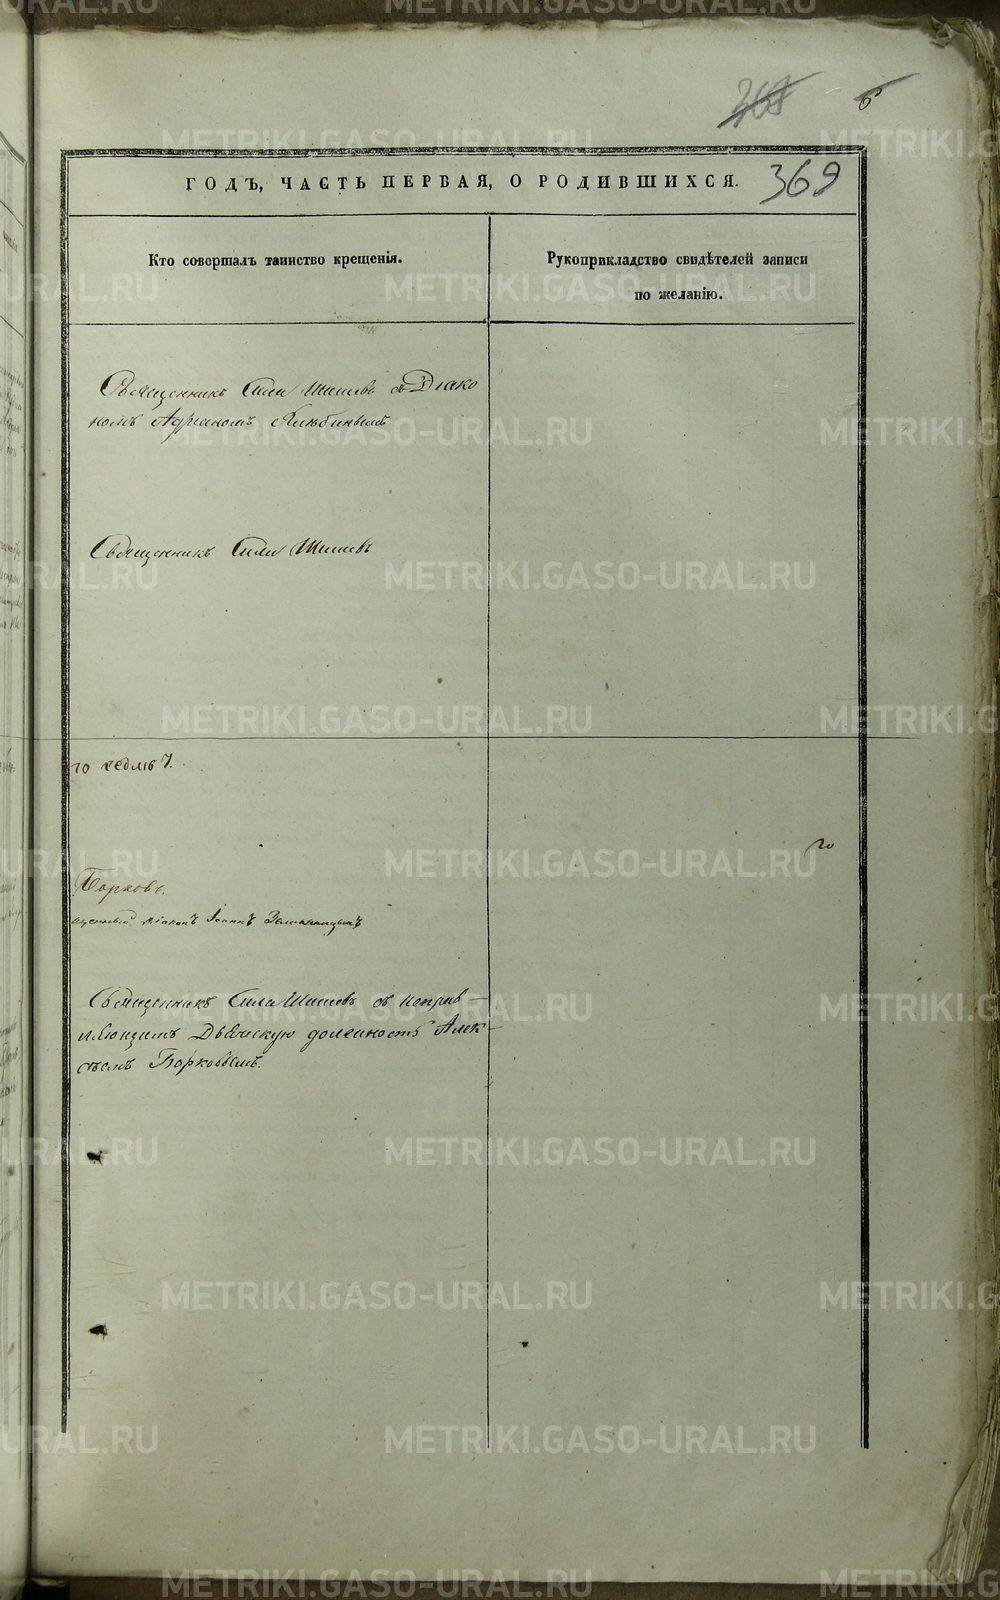 6
369
ГОДЪ, ЧАСТЬ ПЕРВАЯ, О РОДИВШИХСЯ.
Кто совершалъ таинство крещенія.
Рукоприкладство свидѣтелей записи
по желанію.
Священникъ Сила Шишевъ съ Діако
номъ Адріаномъ
Священникъ Сила Шишевъ
го седмь 7.
го
Борковъ.
Діаконъ Іоаннъ
Священникъ Сила Шишевъ съ исправ-
ляющимъ Дьяческую должность Алек-
сѣемъ Борковымъ.
METRIKI.GASO-URAL.RU